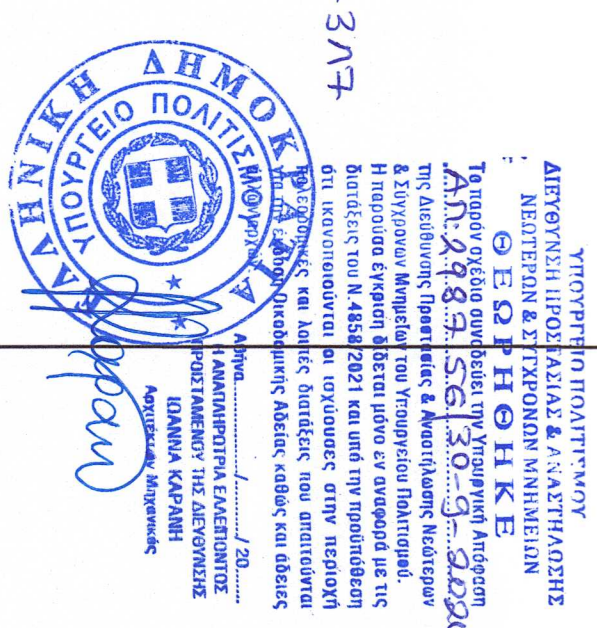 ΥΠΟΥΡΓΕΙΟ ΠΟΛΙΤΙΣΜΟΥ
ΔΙΕΥΘΥΝΣΗ ΠΡΟΣΤΑΣΙΑΣ & ΑΝΑΣΤΗΛΩΣΗΣ
ΝΕΩΤΕΡΩΝ & ΣΥΓΧΡΟΝΩΝ ΜΝΗΜΕΙΩΝ
ΘΕΩΡΗΘΗΚΕ
Το παρόν σχέδιο συνοδεύει την Υπουργική Απόφαση
ΑΠ. 298756/30-9-202
της Διεύθυνσης Προστασίας & Αναστήλωσης Νεώτερων
& Σύγχρονων Μνημείων του Υπουργείου Πολιτισμού.
Η παρούσα έγκριση δίδεται μόνο εν αναφορά με τις
διατάξεις του Ν.4858/2021 και υπό την προϋπόθεση
ότι ικανοποιούνται οι ισχύουσες στην περιοχή
πολεοδομικές και λοιπές διατάξεις που απαιτούνται
για την έκδοση Οικοδομικής Αδείας καθώς και άδειες
Αθήνα........../........../ 20.....
Η ΑΝΑΠΛΗΡΩΤΡΙΑ ΕΛΛΕΙΠΟΝΤΟΣ
ΠΡΟΙΣΤΑΜΕΝΟΥ ΤΗΣ ΔΙΕΥΘΥΝΣΗΣ
ΙΩΑΝΝΑ ΚΑΡΑΝΗ
Αρχιτέκτων Μηχανικός
ΕΛΛΗΝΙΚΗ ΔΗΜΟΚΡΑΤΙΑ
ΥΠΟΥΡΓΕΙΟ ΠΟΛΙΤΙΣΜΟΥ